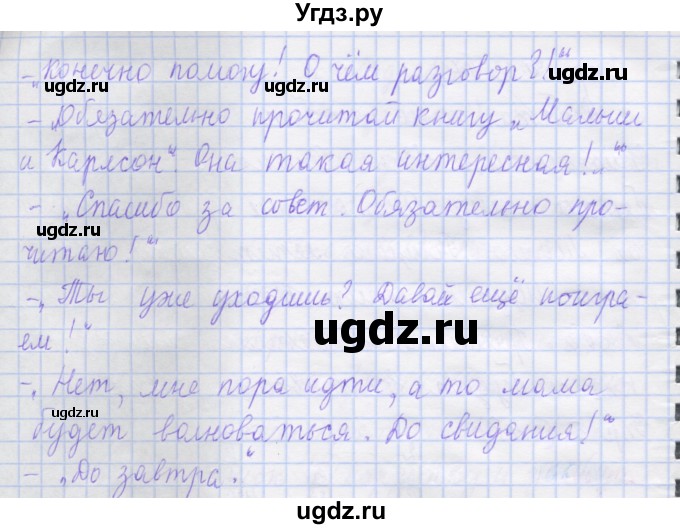 Угдз.ру
- „Конечно помогу! О чём разговор?!“
- „Обязательно прочитай книгу „Малыш
и Карлсон“. Она такая интересная!..“
- „Спасибо за совет. Обязательно про-
читаю!“
- „Ты уже уходишь? Давай ещё поигра-
ем!“
- „Нет, мне пора идти, а то мама
будет волноваться. До свидания!“
- „До завтра.“
ugdz.ru
ugdz.ru
ugdz.ru
ugdz.ru
ugdz.ru
ugdz.ru
ugdz.ru
ugdz.ru
ugdz.ru
ugdz.ru